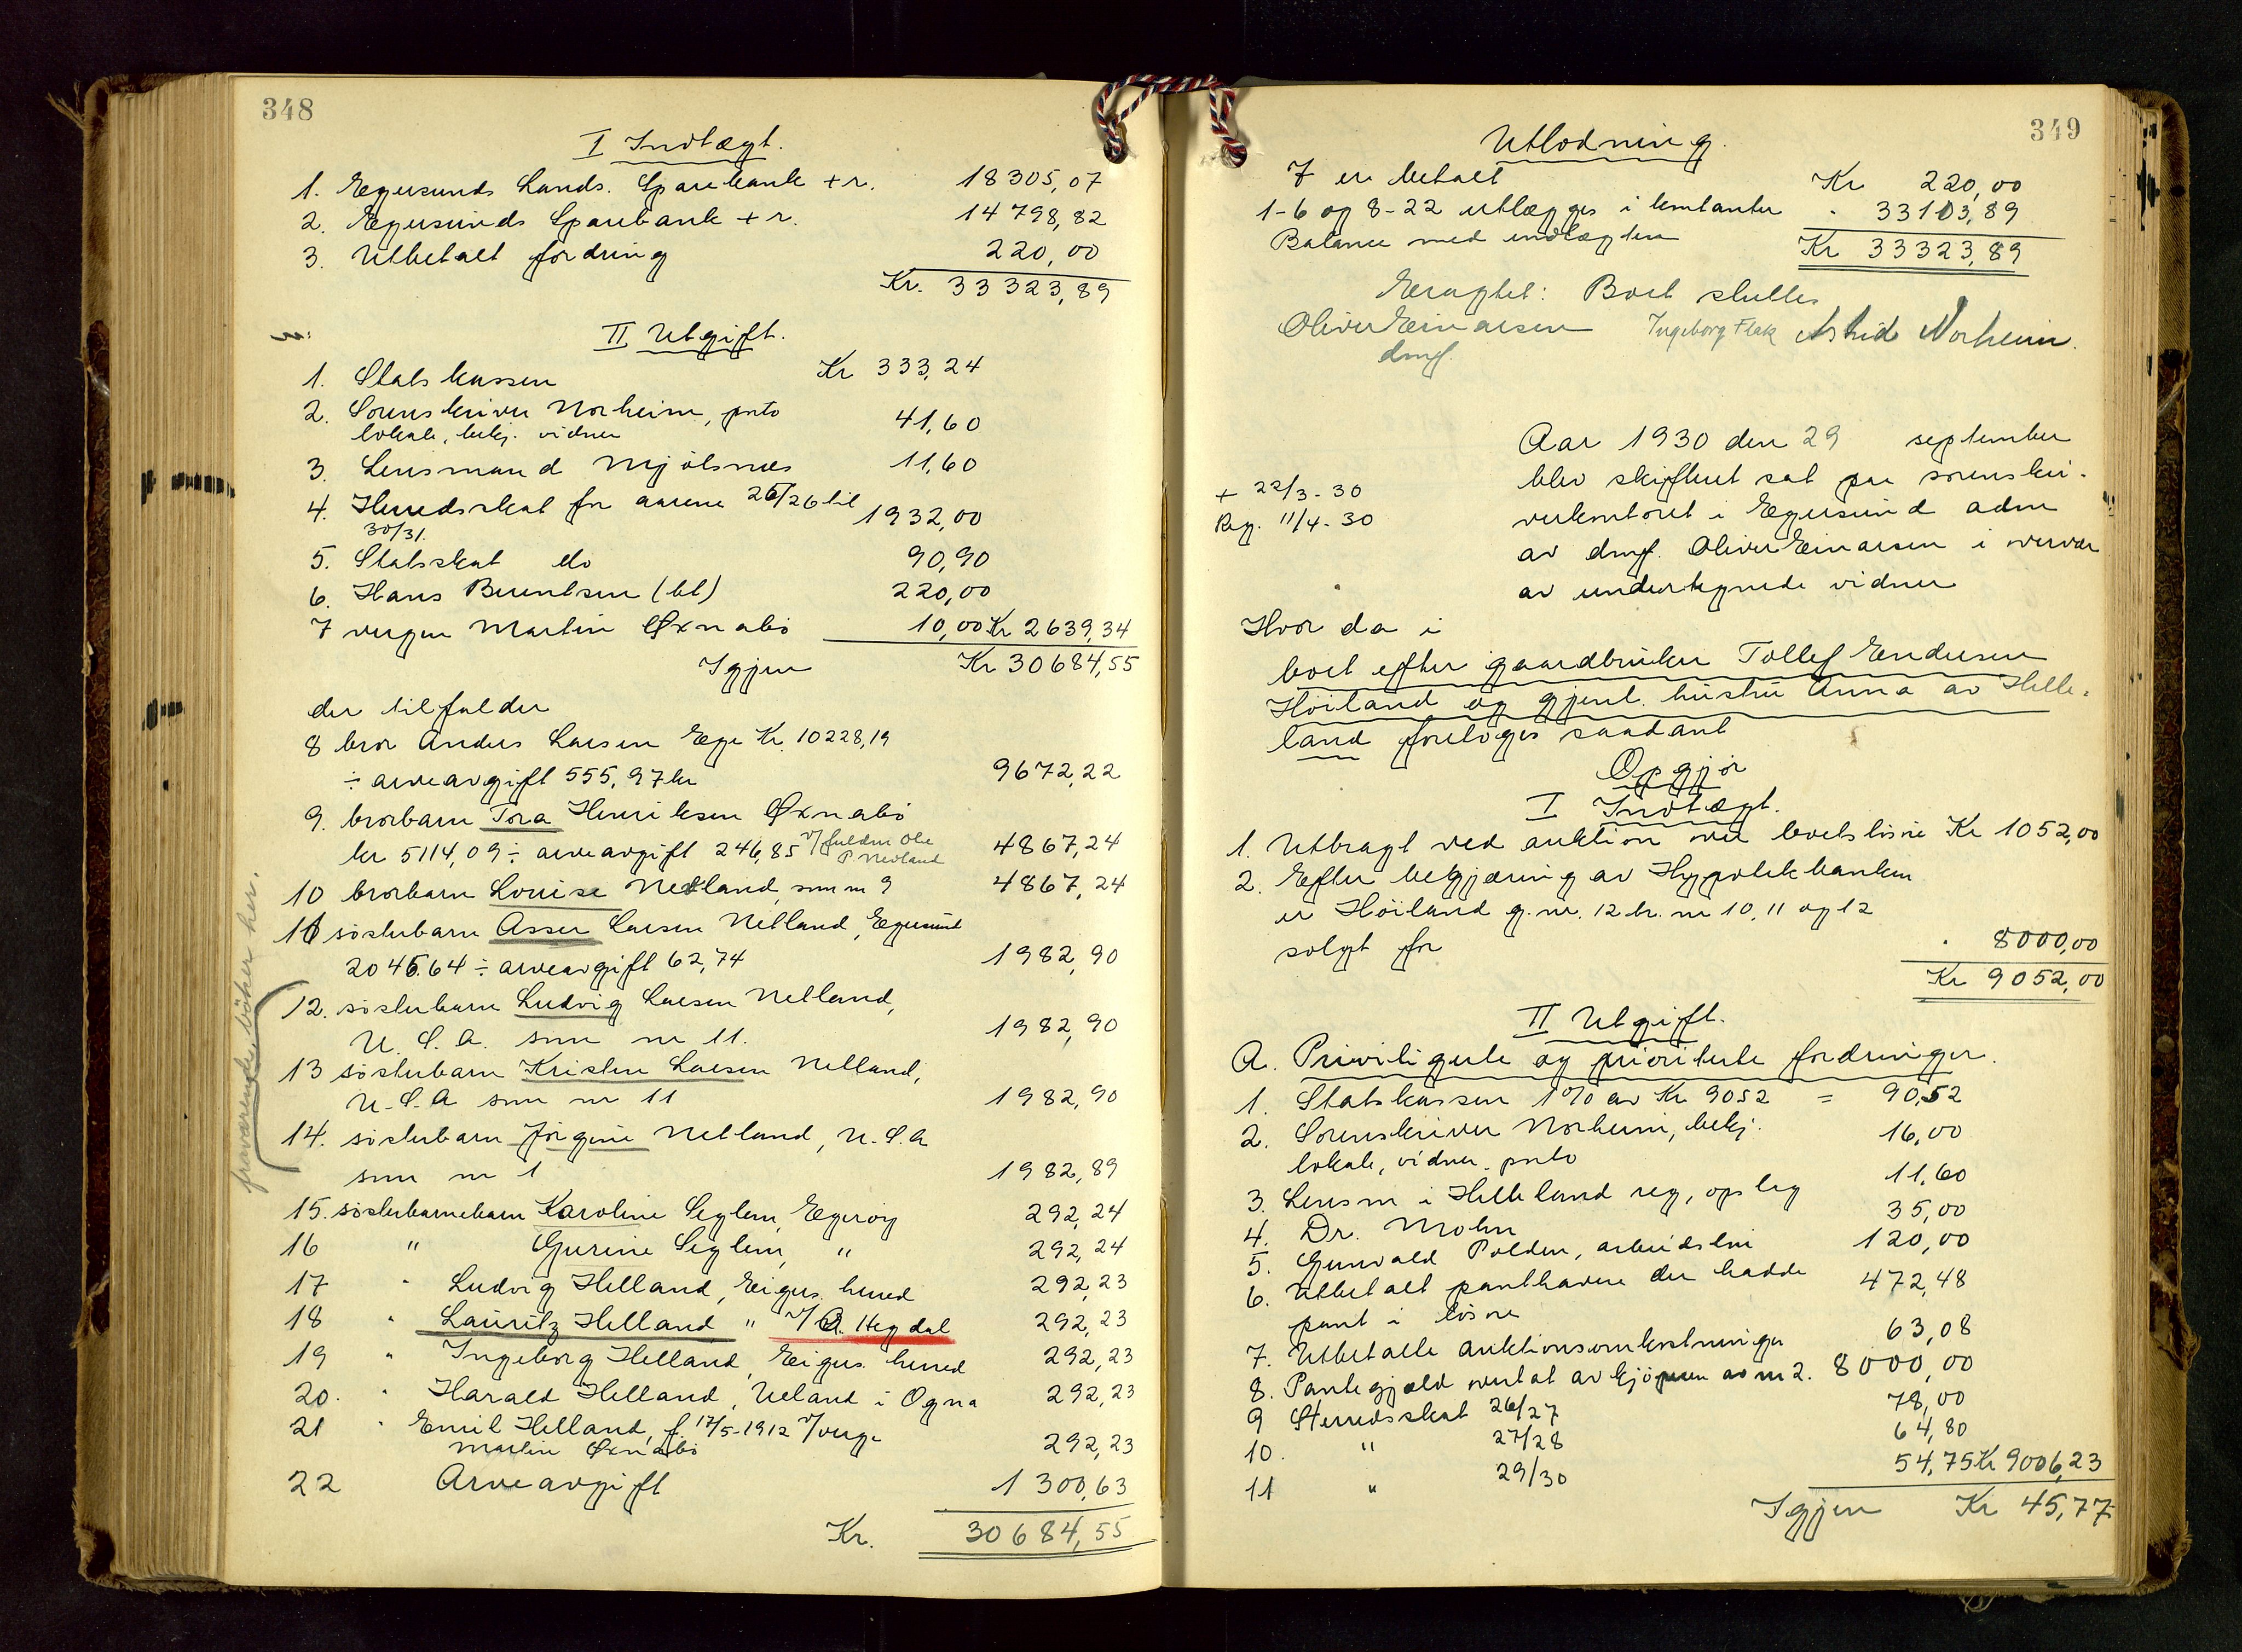 348
I Indtægt.
1. Egersunds Lands. Sparebank + r. 18305,07
2. Egersunds Sparebank + r. 14798,82
3. Utbetalt fordring 220,00
Kr. 33323,89
II Utgift.
1. Statskassen Kr 333,24
2. Sorenskriver Norheim, porto
lokale, bekj. vidner 41,60
3. Lensmand Mjølsnes 11,60
4. Herredsskat for aarene 25/26 til
30/31. 1932,00
5. Statsskat do 90,90
6. Hans Berentsen (bt) 220,00
7 vergen Martin Øxnabø 10,00 Kr 2639,34
Igjen Kr 30684,55
der tilfalder
8 bror Anders Larsen Ege Kr. 10228,19
÷ arveavgift 555,97 kr 9672,22
9. brorbarn Tora Henriksen Øxnabø
kr 5114,09 ÷ arveavgift 246,85 v/fuldm Ole P. Nevland 4867,24
10 brorbarn Louise Netland, som nr 9 4867,24
11 søsterbarn Asser Larsen Netland, Egersund
2045.64 ÷ arveavgift 62,74 1982,90
12. søsterbarn Ludvig Larsen Netland,
U. S. A. som nr 11. 1982,90
13 søsterbarn Kristen Larsen Netland,
U. S. A som nr 11 1982,90
14. søsterbarn Jørgine Netland, U. S. A
som nr 1 1982,89
fraværende, bøker her.
15. søsterbarnebarn Karoline Seglem, Egerøy 292,24
16 " Gurine Seglem, " 292,24
17 " Ludvig Helland, Eigers. herred 292,23
18 " Lauritz Helland " v/ A. Hegdal 292,23
19 " Ingeborg Helland, Eigers. herred 292,23
20. " Harald Helland, Ueland i Ogna 292,23
21 " Emil Helland, f. 17/5-1912 v/verge
Martin Øxnabø 292,23
22 Arveavgift 1300,63
Kr. 30684,55
349
Utlodning.
7 er betalt Kr 220,00
1-6 og 8-22 utlægges i kontanter " 33103,89
Balance med indtægten Kr 33323,89
Eragtet: Boet sluttes
Oliver Einarsen Ingeborg Flak Astrid Norheim.
dmf.
Aar 1930 den 29 september
blev skifteret sat paa sorenskri-
verkontoret i Egersund adm
av dmf. Oliver Einarsen i overvær
av undertegnede vidner
+ 22/3-30
Reg. 11/4-30
Hvor da i
boet efter gaardbruker Tollef Endresen
Høiland og gjenl. hustru Anna av Helle-
land foretoges saadant
Opgjør
I Indtægt.
1. Utbragt ved auktion over boets løsøre Kr 1052,00
2. Efter begjæring av Hypotekbanken
er Høiland g.nr. 12 br. nr 10, 11 og 12
solgt for " 8000,00
Kr 9052,00
II Utgift.
A. Priviligerte og prioriterte fordringer.
1. Statskassen 1% av Kr 9052 = 90,52
2. Sorenskriver Norheim, bekj.
lokale, vidner, porto 16,00
3. Lensm i Helleland reg, opslag 11,60
4. Dr. Mohn 35,00
5. Gunvald Polden, arbeidsløn 120,00
6. Utbetalt panthavere der hadde
pant i løsøre 472,48
7. Utbetalte auktionsomkostninger 63,08
8. Pantegjæld overtat av kjøperen av nr 2. 8000,00
9 Herredsskat 26/27 78,00
10. " 27/28 64,80
11 " 29/30 54,75 Kr 9006,23
Igjen Kr 45,77